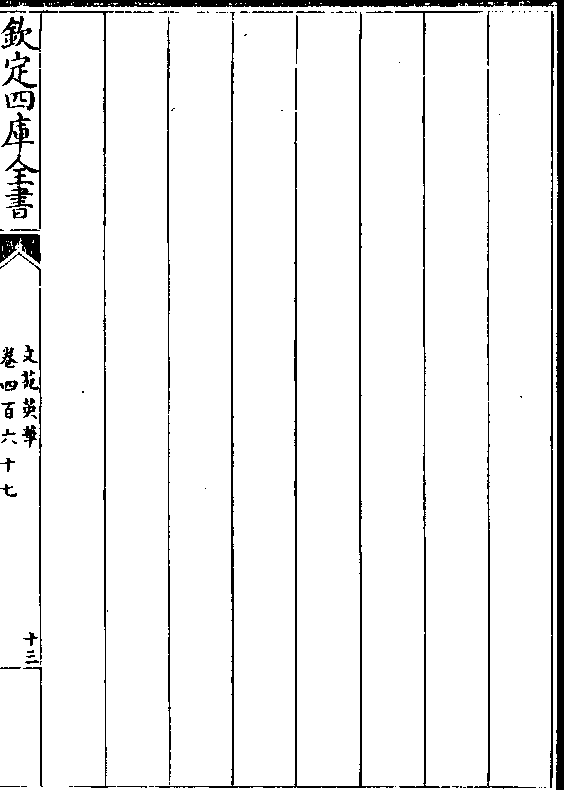 欽定四庫全書
文苑英華
卷四百六十七
十三